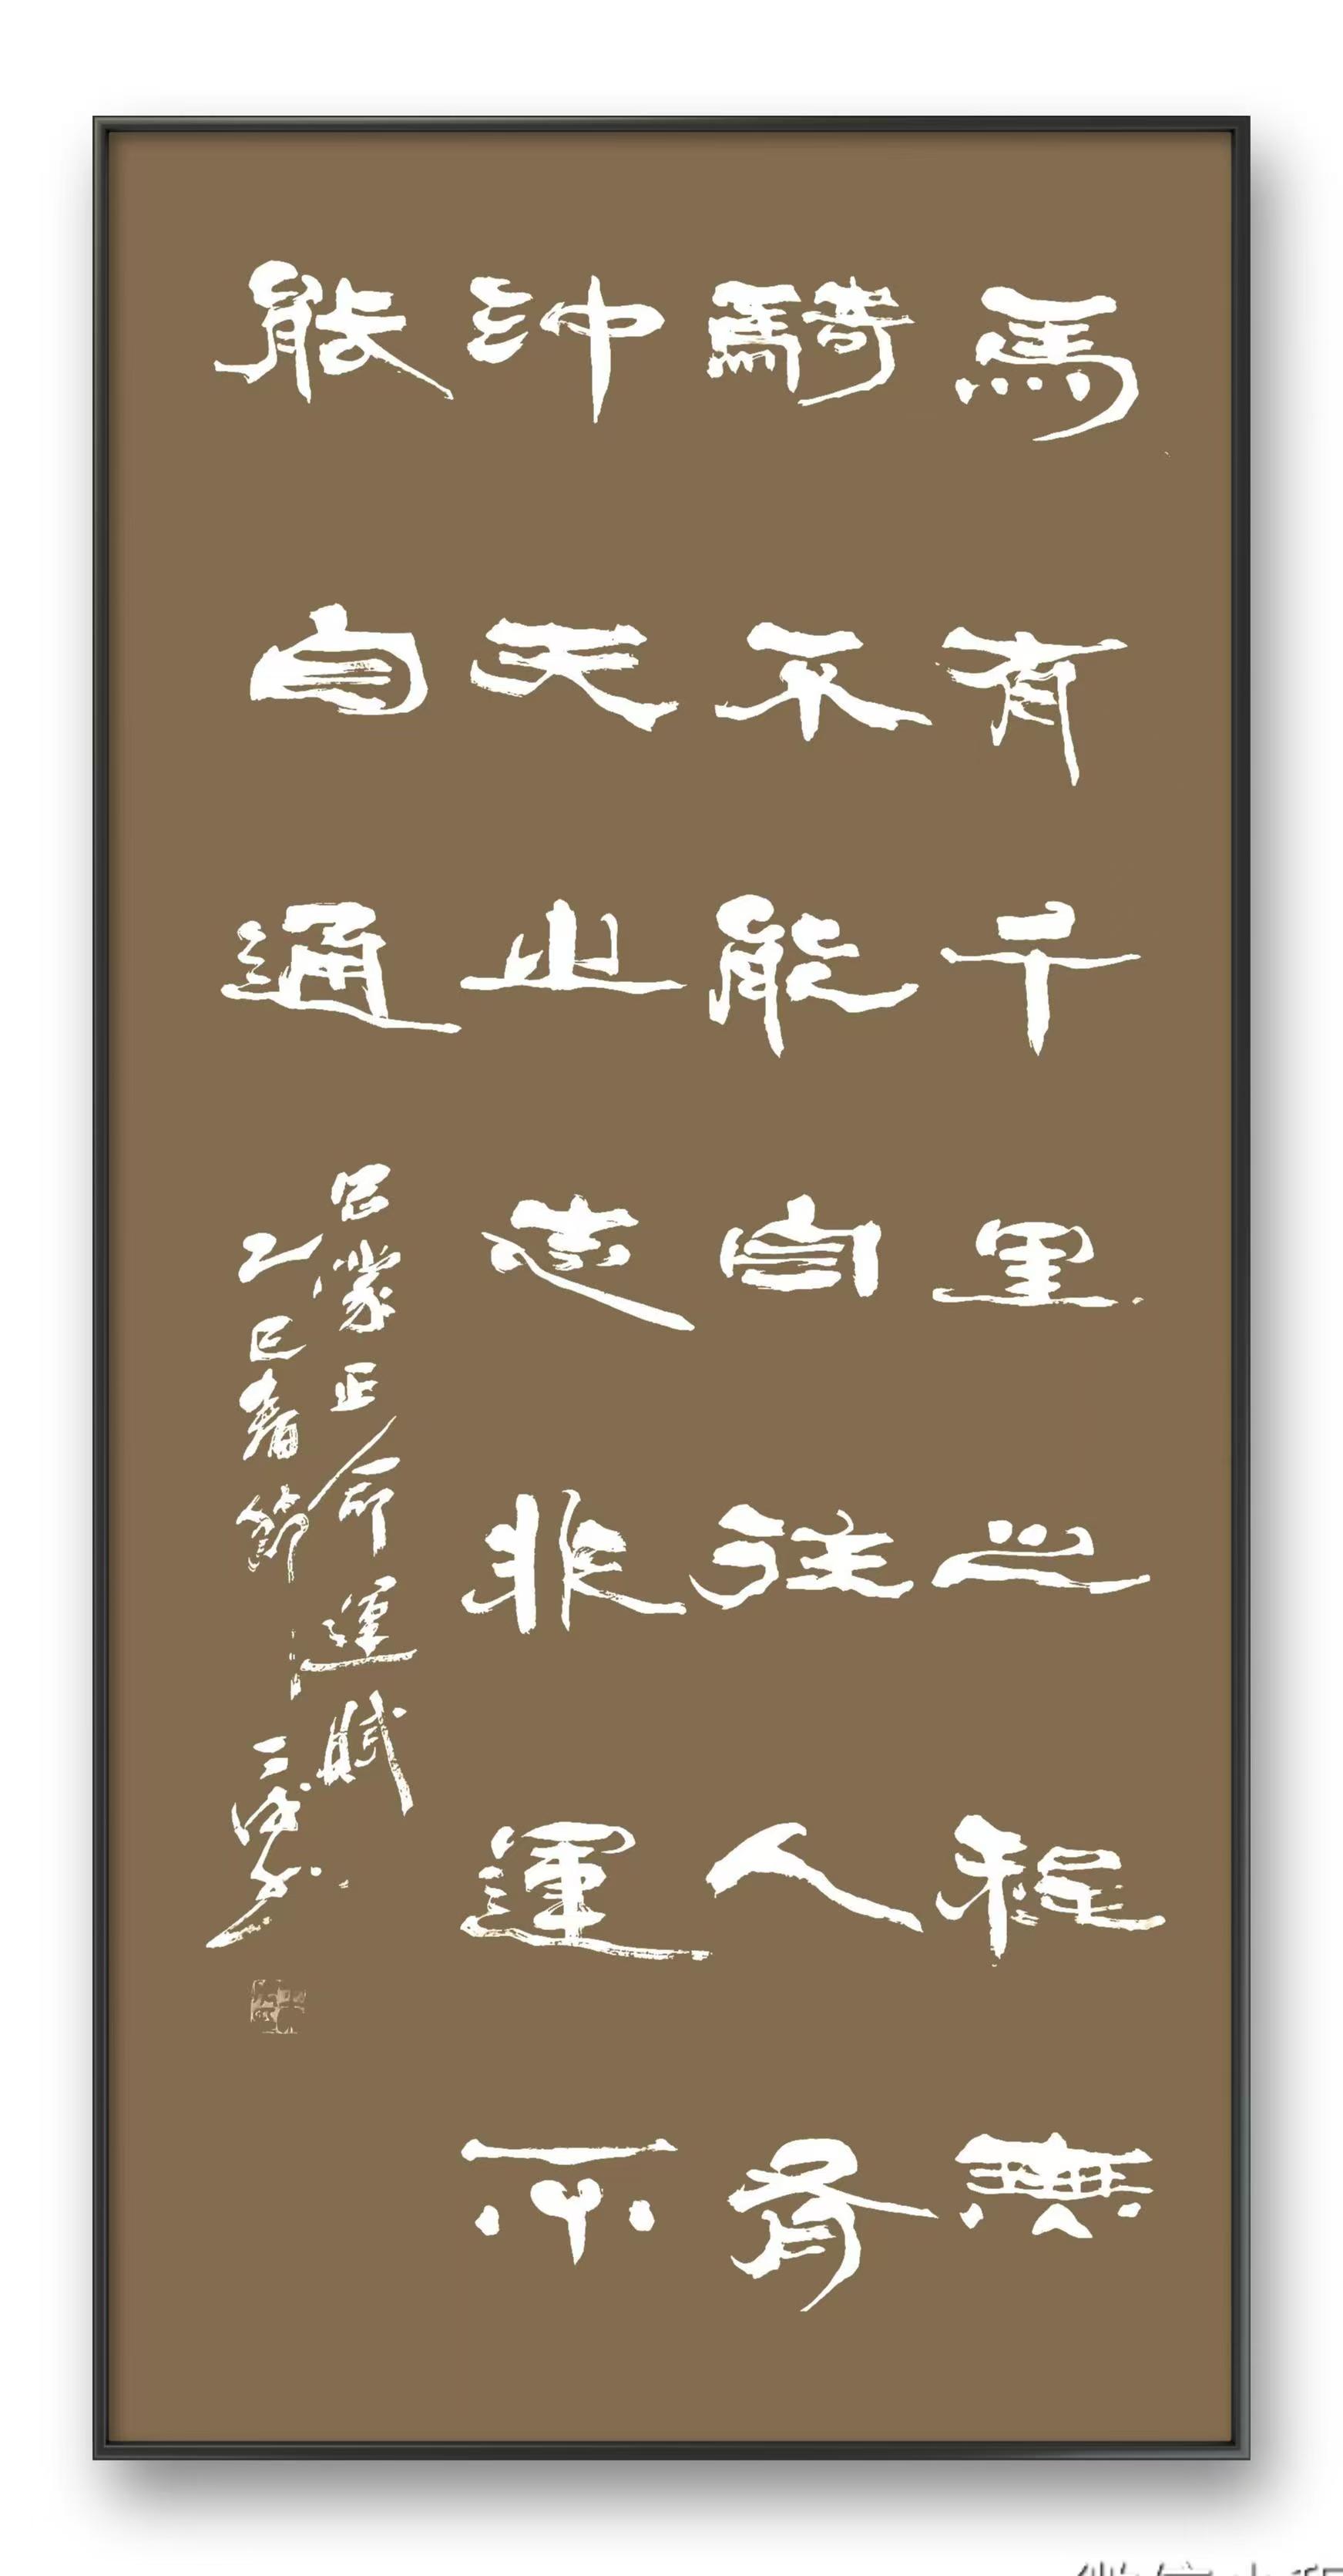 馬有千里之程無
騎不能自往人有
沖天之志非運不
能自通
吕蒙正命運賦
乙巳春節